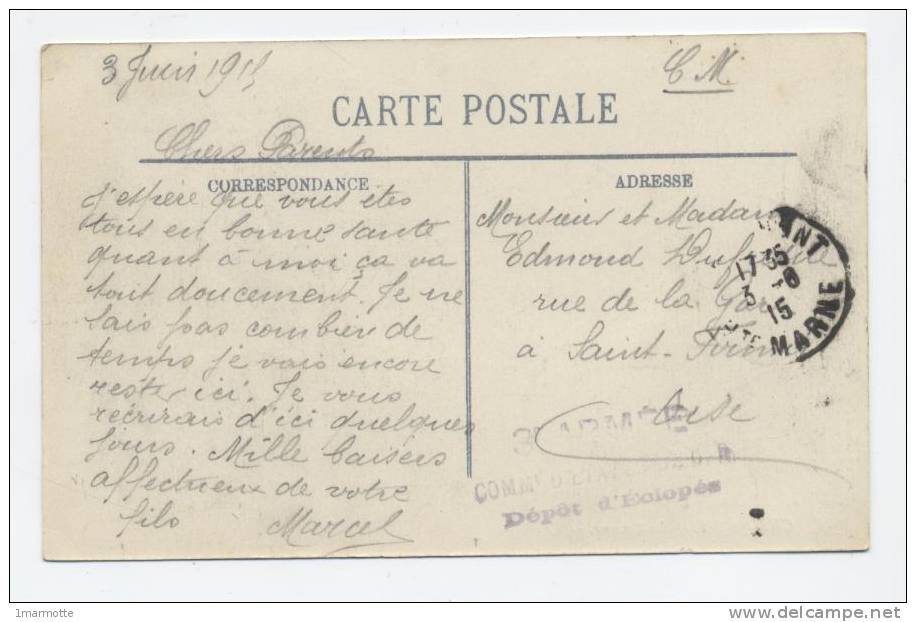 3 Juin 1915
C M.
CARTE POSTALE
Chers Parents
CORRESPONDANCE
J'espère que vous etes
tous en bonne santé
quant à moi ça va
tout doucement. Je ne
sais pas combien de
temps je vais encore
rester ici. Je vous
récrirais d'ici quelques
jours. Mille baisers
affectueux de votre
fils Marcel
ADRESSE
Monsieur et Madam
Edmond
rue de la Gare
à Saint-Firmin
Oise
17 35
3 -6
15
MARNE
ARMÉE
COMM
Dépôt d'Eclopés
1marmotte
www.delcampe.net